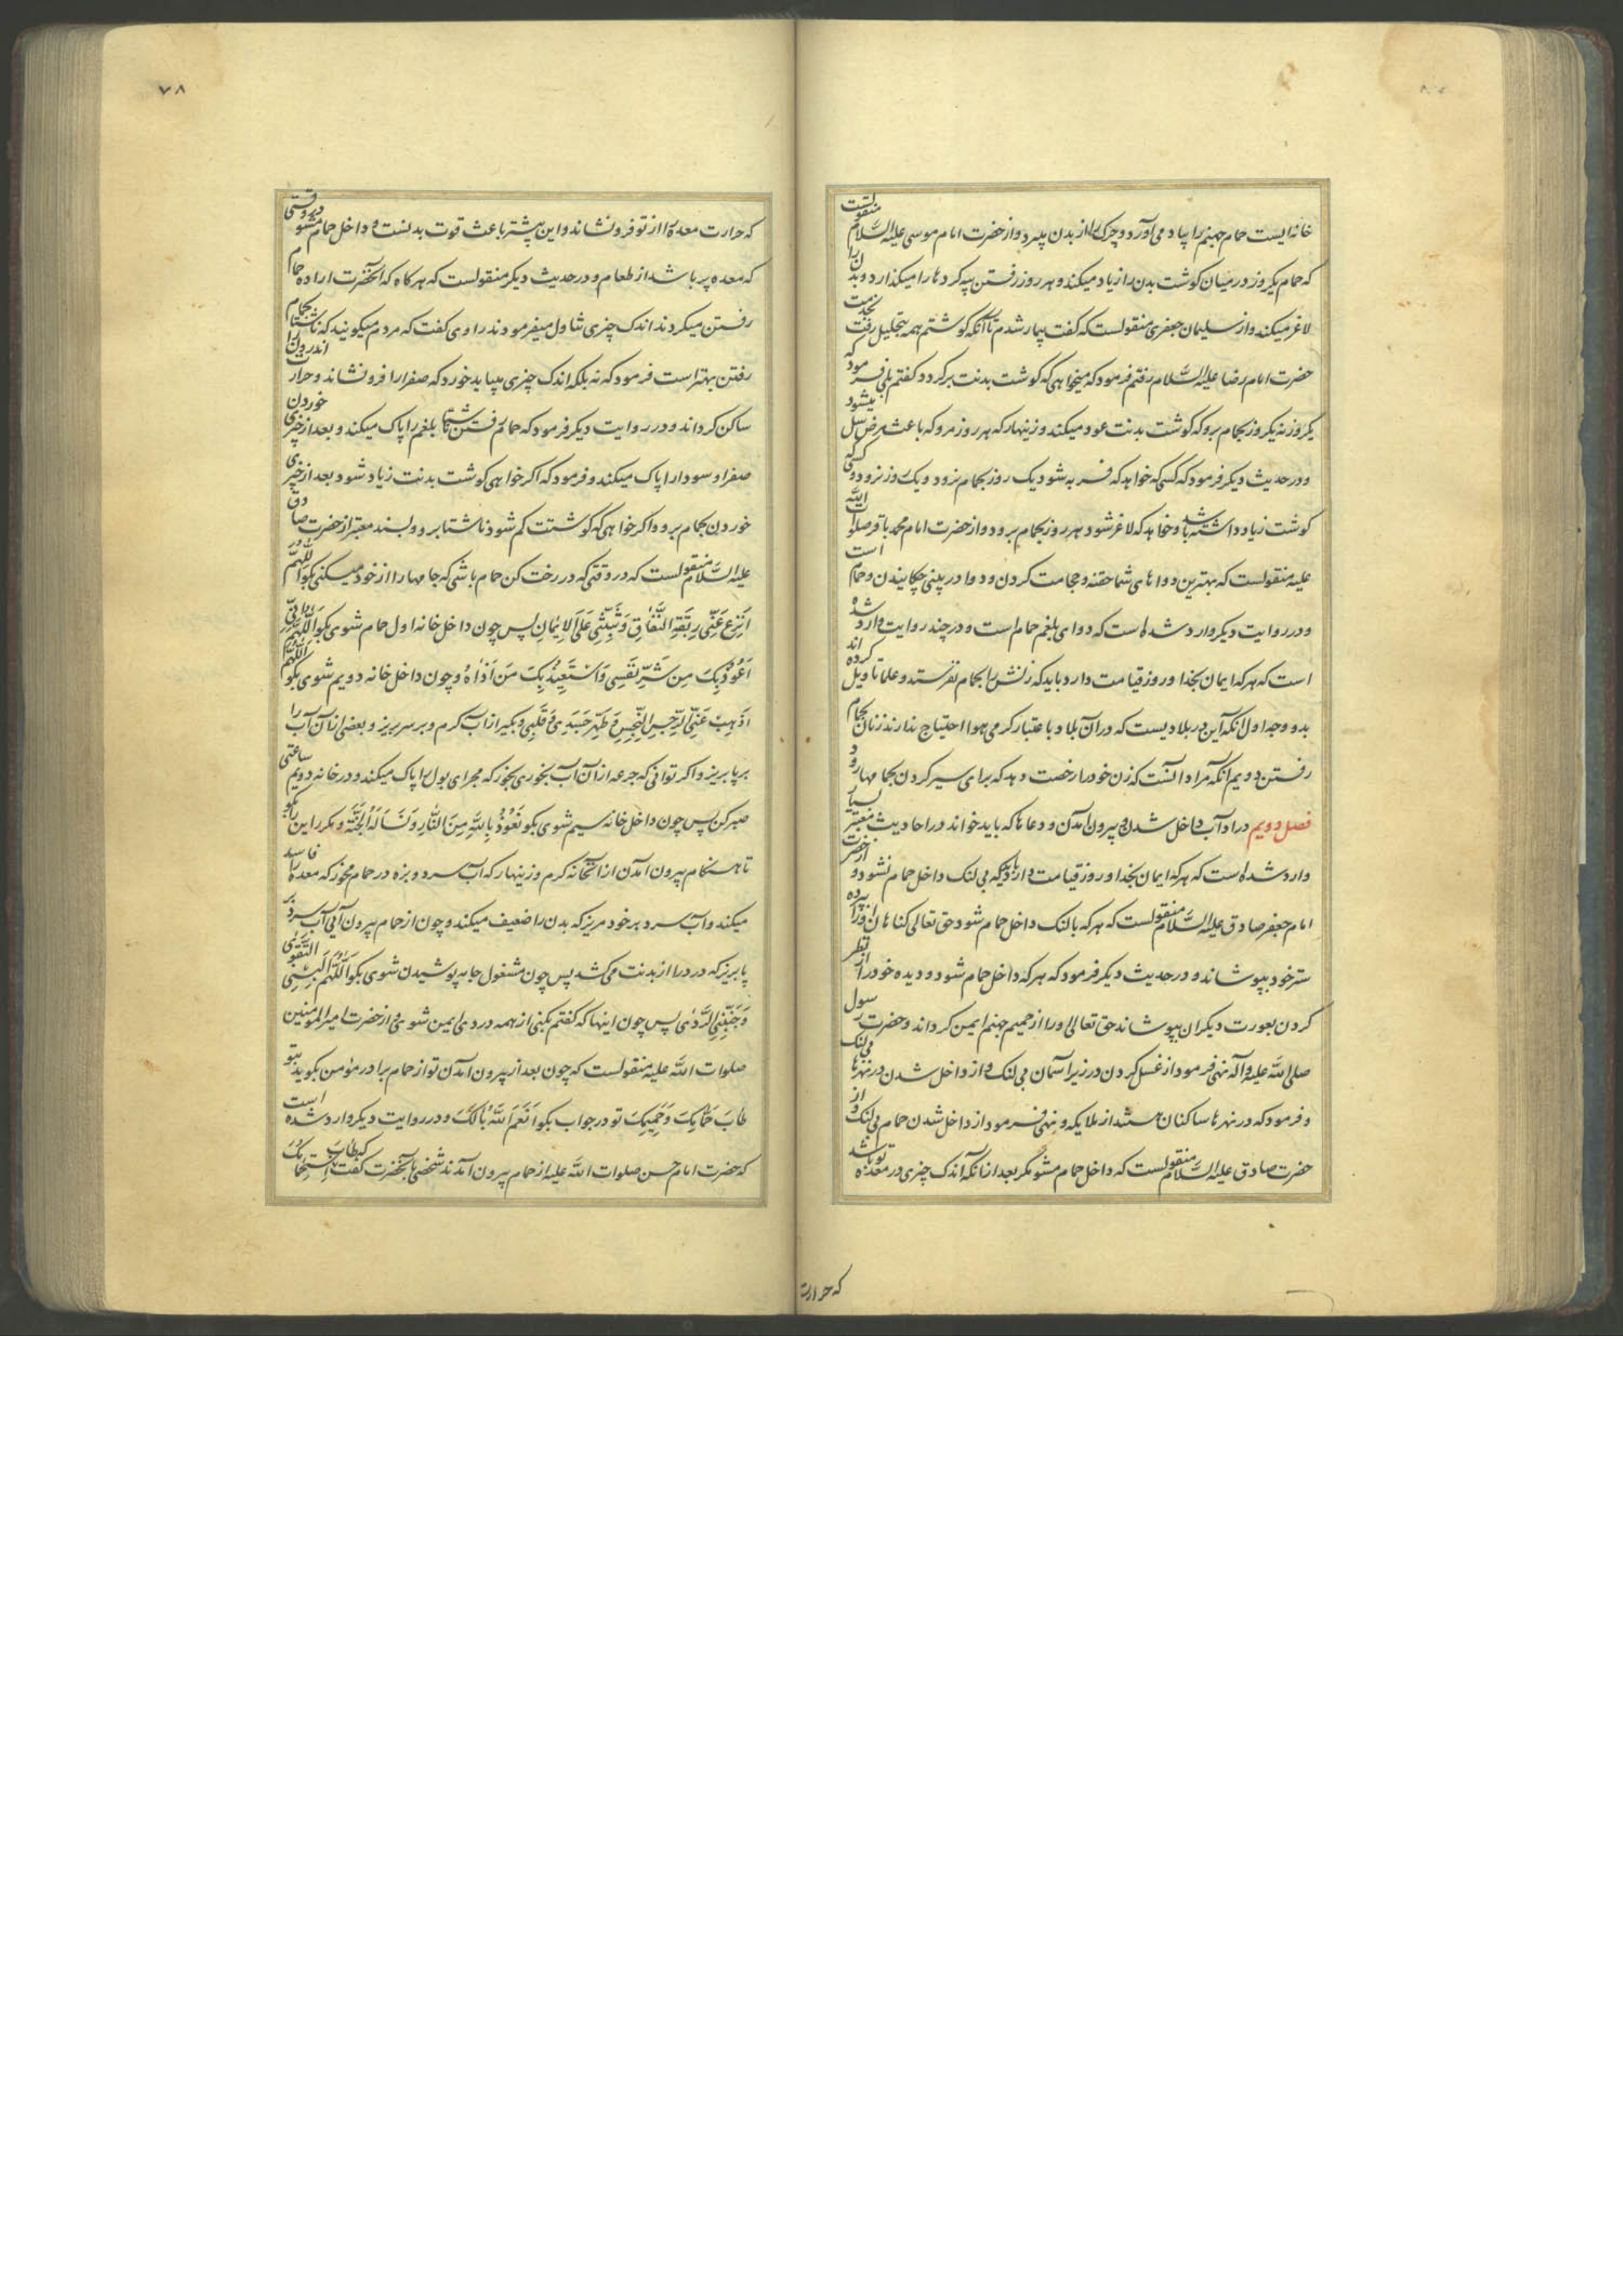 خانه‌ایست حمام جهنم را بیاد می‌آورد و چرک را از بدن میبرد و از حضرت امام موسی علیه السلام منقولست
که حمام یکروز در میان گوشت بدن را زیاد میکند و هر روز رفتن پیه گرده‌ها را میگذارد و بدن را
لاغر میکند و از سلیمان جعفری منقولست که گفت بیمار شدم تا آنکه گوشتم همه بتحلیل رفت بخدمت
حضرت امام رضا علیه السلام رفتم فرمود که میخواهی که گوشت بدنت برگردد گفتم بلی فرمود که
یکروز نه یکروز بحمام برو که گوشت بدنت عود میکند و زینهار که هر روز مرو که باعث مرض سل میشود
و در حدیث دیگر فرمود که کسی که خواهد که فربه شود یک روز بحمام برود و یک روز نرود و کسی که
گوشت زیاد داشته باشد و خواهد که لاغر شود هر روز بحمام برود و از حضرت امام محمد باقر صلوات الله
علیه منقولست که بهترین دواهای شما حقنه و حجامت کردن و دوا در بینی چکانیدن و حمام است
و در روایت دیگر وارد شده است که دوای بلغم حمام است و در چند روایت وارد شده
است که هر که ایمان بخدا و روز قیامت دارد باید که زنش را بحمام نفرستد و علما تاویل کرده اند
بدو وجه اول آنکه این در بلادیست که در آن بلاد باعتبار گرمی هوا احتیاج ندارند زنان بحمام
رفتن دویم آنکه مراد آنست که زن خود را رخصت دهد که برای سیر کردن بحمامها رود
فصل دویم در اداب داخل شدن و بیرون آمدن و دعاها که باید خواند در احادیث معتبر بسیار
وارد شده است که هر که ایمان بخدا و روز قیامت دارد باید که بی لنگ داخل حمام نشود و از حضرت
امام جعفر صادق علیه السلام منقولست که هر که با لنگ داخل حمام شود حق تعالی گناهان او را بپرده
ستر خود بپوشاند و در حدیث دیگر فرمود که هر که داخل حمام شود و دیده خود را از نظر
کردن بعورت دیگران بپوشاند حق تعالی او را از حمیم جهنم ایمن گرداند و حضرت رسول
صلی الله علیه و آله نهی فرمود از غسل کردن در زیر آسمان بی لنگ و از داخل شدن در نهرها بی لنگ
و فرمود که در نهرها ساکنان هستند از ملایکه و نهی فرمود از داخل شدن حمام بی لنگ و از
حضرت صادق علیه السلام منقولست که داخل حمام مشو مگر بعد از آنکه اندک چیزی در معده تو باشد
که حرارت
۷۸
که حرارت معده را از تو فرو نشاند و این بیشتر باعث قوت بدنست و داخل حمام مشو در وقتی
که معده پر باشد از طعام و در حدیث دیگر منقولست که هر گاه که آنحضرت اراده حمام
رفتن میکردند اندک چیزی تناول میفرمودند راوی گفت که مردم میگویند که ناشتا بحمام
رفتن بهتر است فرمود که نه بلکه اندک چیزی میباید خورد که صفرا را فرو نشاند و حرارت اندرون را
ساکن گرداند و در روایت دیگر فرمود که حمام رفتن ناشتا بلغم را پاک میکند و بعد از چیزی خوردن
صفرا و سودا را پاک میکند و فرمود که اگر خواهی گوشت بدنت زیاد شود بعد از چیزی
خوردن بحمام برو و اگر خواهی که گوشتت کم شود ناشتا برو و بسند معتبر از حضرت صادق
علیه السلام منقولست که در وقتی که در رخت کن حمام باشی که جامها را از خود میکنی بگو اللهم
انزع عنی ربقة النفاق و ثبتنی علی الایمان پس چون داخل خانه اول حمام شوی بگو اللهم انی
اعوذ بک من شر نفسی و استعیذ بک من اذاه و چون داخل خانه دویم شوی بگو اللهم
اذهب عنی الرجس النجس و طهر جسدی و قلبی و بگیر از آب گرم و بر سر بریز و بعضی از آن آب را
بر پا بریز و اگر توانی که جرعه از آن آب بخوری بخور که مجرای بول را پاک میکند و در خانه دویم ساعتی
صبر کن پس چون داخل خانه سیم شوی بگو نعوذ بالله من النار و نساله الجنة و مکرر این را بگو
تا هنگام بیرون آمدن از آنخانه گرم و زینهار که آب سرد و بزه در حمام مخور که معده را فاسد
میکند و آب سرد بر خود مریز که بدن را ضعیف میکند و چون از حمام بیرون آیی آب سرد بر
پا بریز که درد را از بدنت می‌کشد پس چون مشغول جامه پوشیدن شوی بگو اللهم البسنی التقوی
و جنبنی الردی پس چون اینها که گفتم بکنی از همه دردی ایمن شوی و از حضرت امیر المومنین
صلوات الله علیه منقولست که چون بعد از بیرون آمدن تو از حمام برادر مؤمن بگوید بتو
طاب حمامک و حمیمک تو در جواب بگو انعم الله بالک و در روایت دیگر وارد شده است
که حضرت امام حسن صلوات الله علیه از حمام بیرون آمدند شخصی بآنحضرت گفت که طاب استحمامک